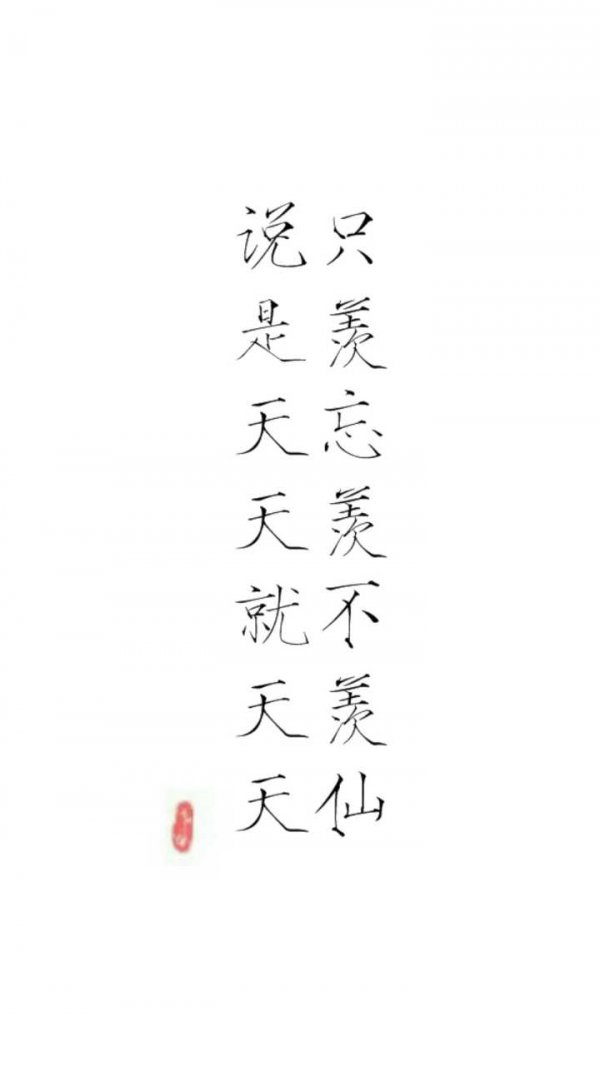 只羡忘羡不羡仙
说是天天就天天